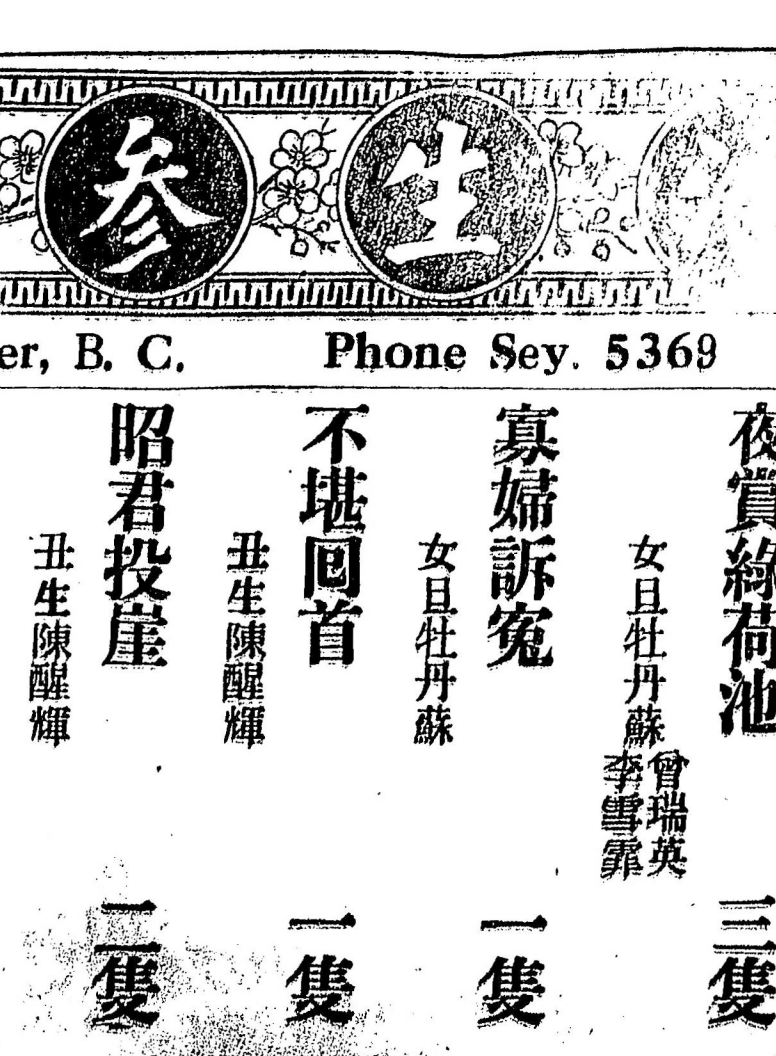 生参
er, B. C. Phone Sey. 5369
夜賞綠荷池
女旦牡丹蘇
曾瑞英
李雪霏
三隻
寡婦訴冤
女旦牡丹蘇
一隻
不堪回首
丑生陳醒輝
一隻
昭君投崖
丑生陳醒輝
二隻